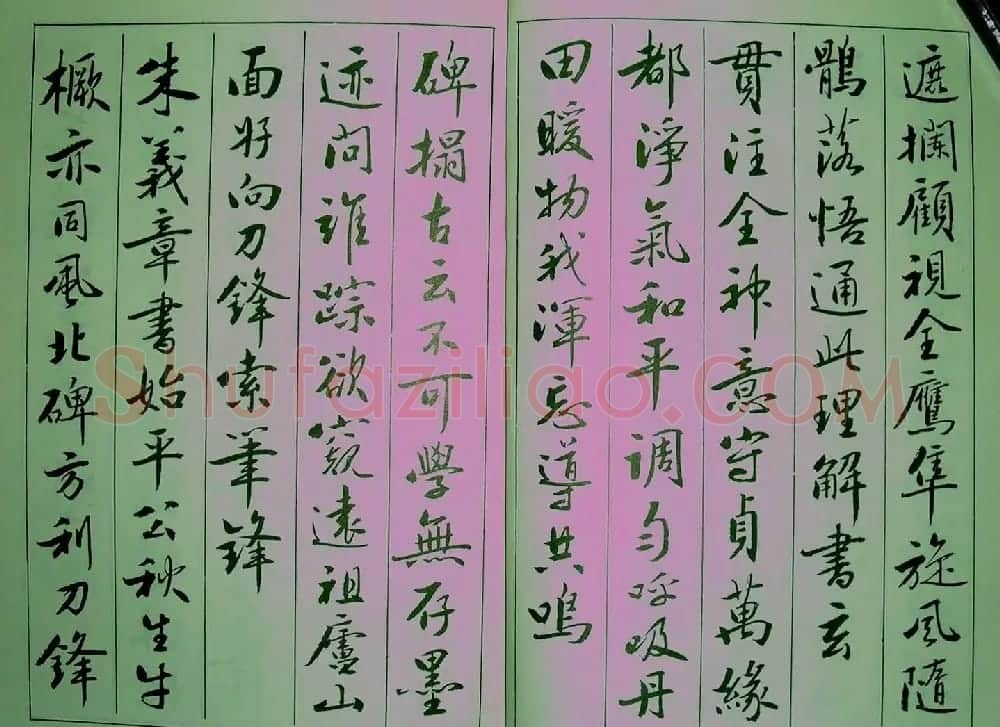 遮拦顧視全鷹隼旋風隨
鶻落悟通此理解書玄
貫注全神意守貞萬緣
都淨氣和平調勻呼吸丹
田暖物我渾忘導共鳴
碑搨古云不可學無存墨
迹問誰踪欲窺遠祖廬山
面好向刀鋒索筆鋒
朱義章書始平公秋生牛
橛亦同風北碑方利刀鋒
Shufaziliao.COM